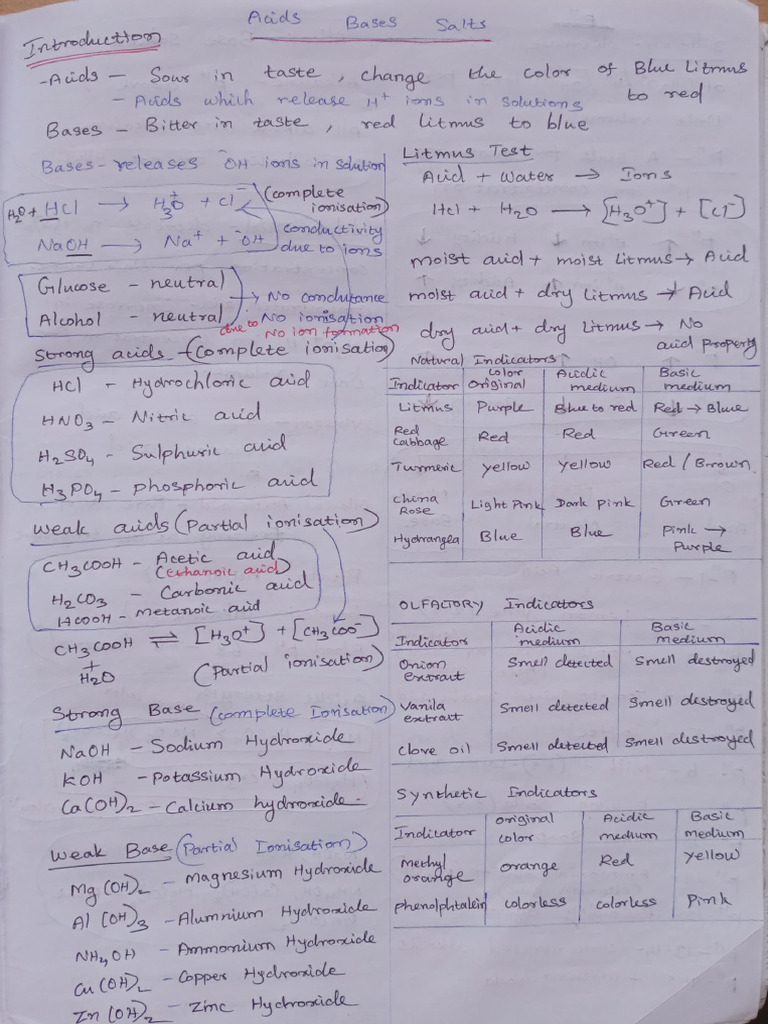 Acids Bases Salts
Introduction
-Acids - Sour in taste, change the color of Blue Litmus to red
- Acids which release H⁺ ions in solutions
Bases - Bitter in taste, red litmus to blue
Bases - releases ⁻OH ions in solution
H₂O + HCl → H₃O⁺ + Cl⁻ (complete ionisation)
NaOH → Na⁺ + ⁻OH
conductivity due to ions
Glucose - neutral
Alcohol - neutral
→ No conductance
due to No ionisation
No ion formation
Strong acids - (Complete ionisation)
HCl - Hydrochloric acid
HNO₃ - Nitric acid
H₂SO₄ - Sulphuric acid
H₃PO₄ - phosphoric acid
Weak acids (Partial ionisation)
CH₃COOH - Acetic acid
(ethanoic acid)
H₂CO₃ - Carbonic acid
HCOOH - metanoic acid
CH₃COOH + H₂O ⇌ [H₃O⁺] + [CH₃COO⁻]
(Partial ionisation)
Strong Base (complete Ionisation)
NaOH - Sodium Hydroxide
KOH - Potassium Hydroxide
Ca(OH)₂ - Calcium hydroxide
Weak Base (Partial Ionisation)
Mg(OH)₂ - Magnesium Hydroxide
Al(OH)₃ - Alumnium Hydroxide
NH₄OH - Ammonium Hydroxide
Cu(OH)₂ - Copper Hydroxide
Zn(OH)₂ - Zinc Hydroxide
Litmus Test
Acid + Water → Ions
Hcl + H₂O → [H₃O⁺] + [Cl⁻]
moist acid + moist Litmus → Acid
moist acid + dry Litmus → Acid
dry acid + dry Litmus → No acid property
Natural Indicators
Indicator color Original Acidic medium Basic medium
Litmus Purple Blue to red Red → Blue
Red cabbage Red Red Green
Turmeric yellow yellow Red / Brown
China Rose Light Pink Dark pink Green
Hydrangea Blue Blue Pink → Purple
OLFACTORY Indicators
Indicator Acidic medium Basic medium
Onion extract Smell detected Smell destroyed
Vanila extract Smell detected Smell destroyed
Clove oil Smell detected Smell destroyed
Synthetic Indicators
Indicator original color Acidic medium Basic medium
Methyl orange orange Red Yellow
phenolphtalein colorless colorless Pink